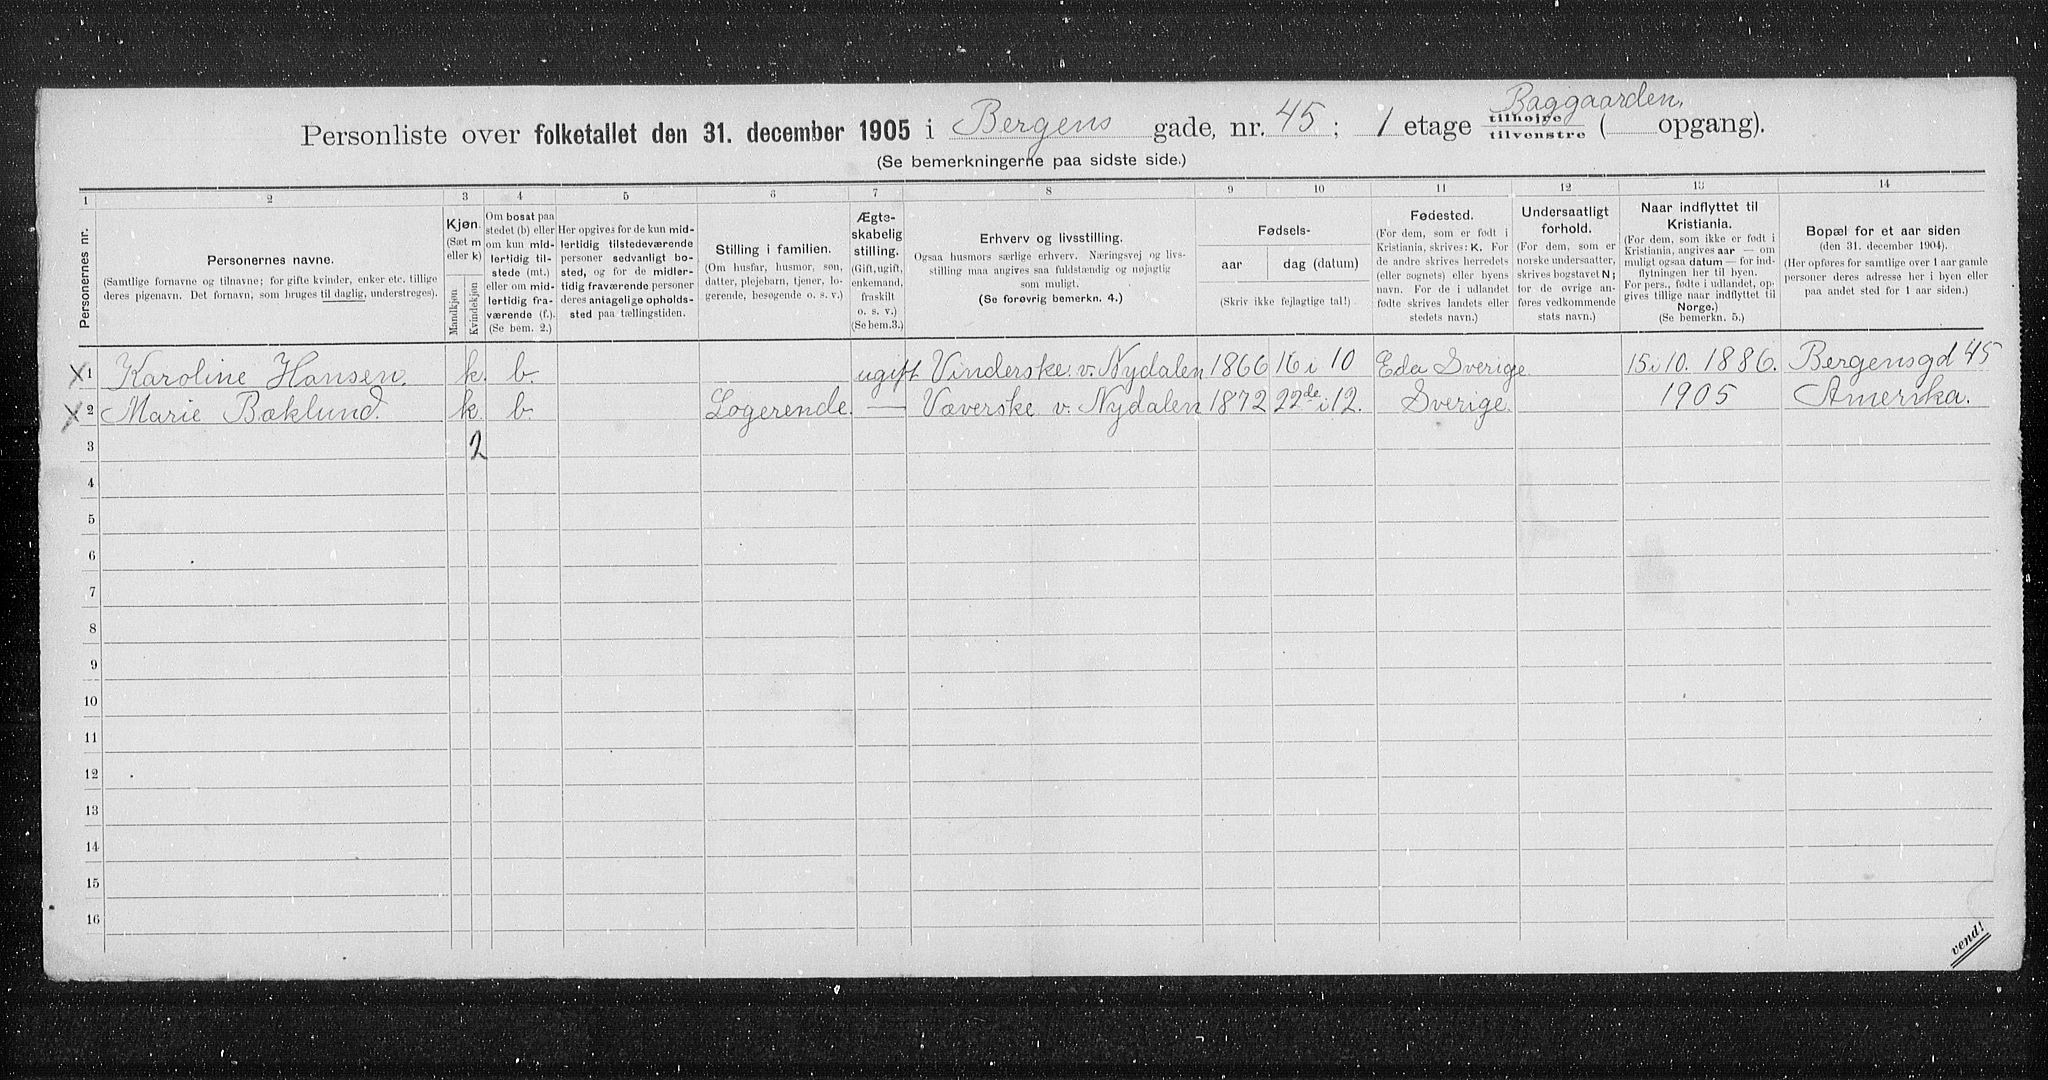 Baggaarden.
Personliste over folketallet den 31. december 1905 i Bergens gade, nr. 45; 1 etage tilhøjre tilvenstre ( opgang).
(Se bemerkningerne paa sidste side.)
1 2 3 4 5 6 7 8 9 10 11 12 13 14
Personernes nr.
Personernes navne.
(Samtlige fornavne og tilnavne; for gifte kvinder, enker etc. tillige
deres pigenavn. Det fornavn, som bruges til daglig, understreges).
Kjøn.
(Sæt m
eller k)
Mandkjøn
Kvindekjøn
Om bosat paa
stedet (b) eller
om kun mid-
lertidig til-
stede (mt.)
eller om mid-
lertidig fra-
værende (f.).
(Se bem. 2.)
Her opgives for de kun mid-
lertidig tilstedeværende
personer sedvanligt bo-
sted, og for de midler-
tidig fraværende personer
deres antagelige opholds-
sted paa tællingstiden.
Stilling i familien.
(Om husfar, husmor, søn,
datter, plejebarn, tjener, lo-
gerende, besøgende o. s. v.)
Ægte-
skabelig
stilling.
(Gift, ugift,
enkemand,
fraskilt
o. s. v.)
(Se bem.3.)
Erhverv og livsstilling.
Ogsaa husmors særlige erhverv. Næringsvej og livs-
stilling maa angives saa fuldstændig og nøjagtig
som muligt.
(Se forøvrig bemerkn. 4.)
Fødsels-
aar
dag (datum)
(Skriv ikke fejlagtige tal!).
Fødested.
(For dem, som er født i
Kristiania, skrives: K. For
de andre skrives herredets
(eller sognets) eller byens
navn. For de i udlandet
fødte skrives landets eller
stedets navn.)
Undersaatligt
forhold.
(For dem, som er
norske undersaatter,
skrives bogstavet N;
for de øvrige an-
føres vedkommende
stats navn.)
Naar indflyttet til
Kristiania.
(For dem, som ikke er født i
Kristiania, angives aar — om
muligt ogsaa datum — for ind-
flytningen her til byen.
For pers., fødte i udlandet, op-
gives tillige naar indflyttet til
Norge.)
(Se bemerkn. 5.)
Bopæl for et aar siden
(den 31. december 1904).
(Her opføres for samtlige over 1 aar gamle
personer deres adresse her i byen eller
paa andet sted for 1 aar siden.)
X 1 Karoline Hansen. k. b. ugift Vinderske v. Nydalen 1866 16 i 10 Eda Sverige 15 i 10. 1886. Bergensgd 45
X 2 Marie Bæklund. k. b. Logerende. — Væverske v. Nydalen 1872 22de i 12. Sverige. 1905 Amerika.
3 2
4
5
6
7
8
9
10
11
12
13
14
15
16
vend!